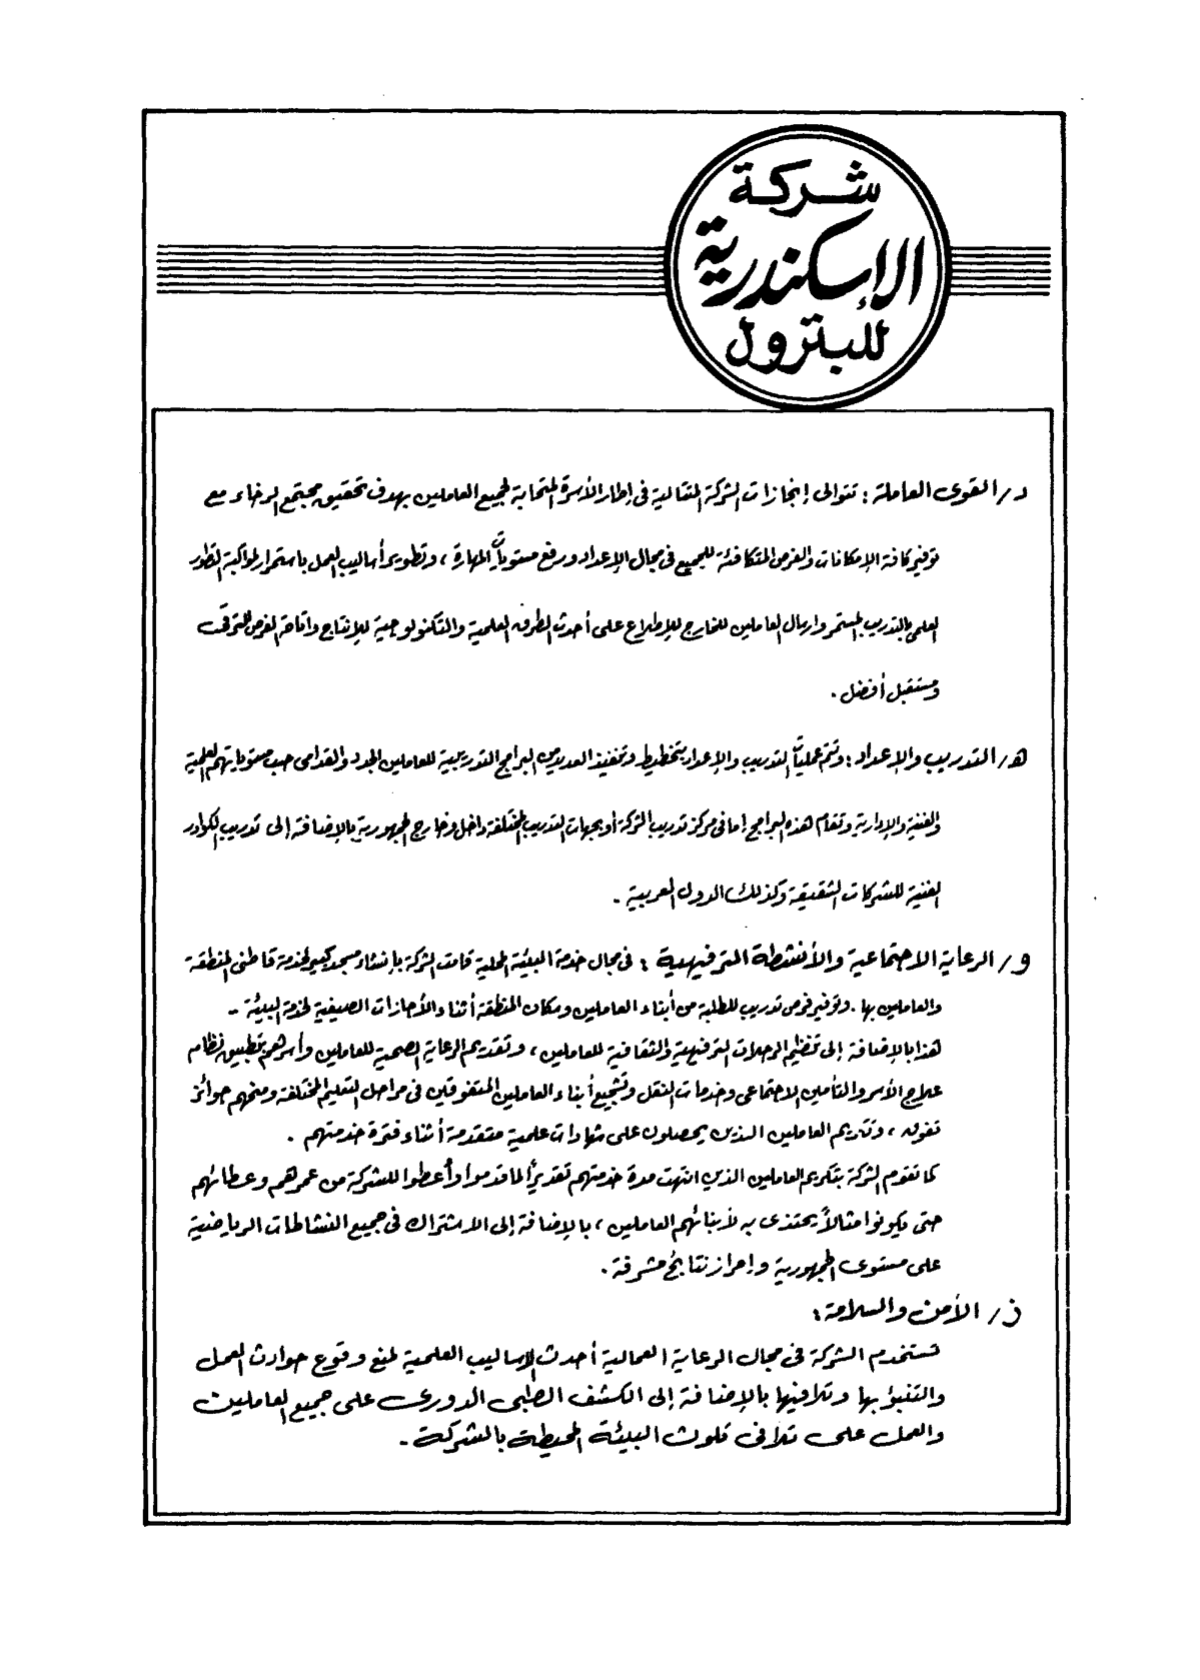 شركة
الإسكندرية
للبترول
د/ القوى العاملة : تتوالى إنجازات الشركة المتتالية فى إطار الأسرة المتحابه لجميع العاملين بهدف تحقيق مجتمع الرخاء مع
توفير كافة الإمكانات والفرص المتكافئة للجميع فى مجال الإعداد ورفع مستويات المهارة ، وتطوير أساليب العمل باستمرار لمواكبة التطور
العلمى بالتدريب المستمر وارسال العاملين للخارج للإطلاع على أحدث الطرق العلمية والتكنولوجية للإنتاج واتاحة الفرص للترقى
ومستقبل أفضل .
هـ/ التدريب والإعداد : وتتم عمليات التدريب والإعداد بتخطيط وتنفيذ العديد من البرامج التدريبية للعاملين الجدد والقدامى حسب مستوياتهم العلمية
والفنية والإدارية وتقام هذه البرامج إما فى مركز تدريب الشركة أو بجهات التدريب المختلفة داخل وخارج الجمهورية بالإضافة إلى تدريب الكوادر
الفنية للشركات الشقيقة وكذلك الدول العربية .
و/ الرعاية الاجتماعية والأنشطة الترفيهية : فى مجال خدمة البيئة المحلية قامت الشركة بإنشاء مسجد كبير لخدمة قاطنى المنطقة
والعاملين بها . وتوفير فرص تدريب للطلبة من أبناء العاملين وسكان المنطقة أثناء الأجازات الصيفية لخدمة البيئة .
هذا بالإضافة إلى تنظيم الرحلات الترفيهية والثقافية للعاملين ، وتقديم الرعاية الصحية للعاملين وأسرهم بتطبيق نظام
علاج الأسر والتأمين الاجتماعى وخدمات النقل وتشجيع أبناء العاملين المتفوقين فى مراحل التعليم المختلفة ومنحهم جوائز
تفوق ، وتكريم العاملين الذين يحصلون على شهادات علمية متقدمة أثناء فترة خدمتهم .
كما تقوم الشركة بتكريم العاملين الذين انتهت مدة خدمتهم تقديراً لما قدموا وأعطوا للشركة من عمرهم وعطائهم
حتى يكونوا مثالاً يحتذى به لأبنائهم العاملين ، بالإضافة إلى الاشتراك فى جميع النشاطات الرياضية
على مستوى الجمهورية وإحراز نتائج مشرفة .
ز/ الأمن والسلامة :
تستخدم الشركة فى مجال الرعاية العمالية أحدث الاساليب العلمية لمنع وقوع حوادث العمل
والتنبؤ بها وتلافيها بالإضافة إلى الكشف الطبى الدورى على جميع العاملين
والعمل على تلافى تلوث البيئة المحيطة بالشركة .